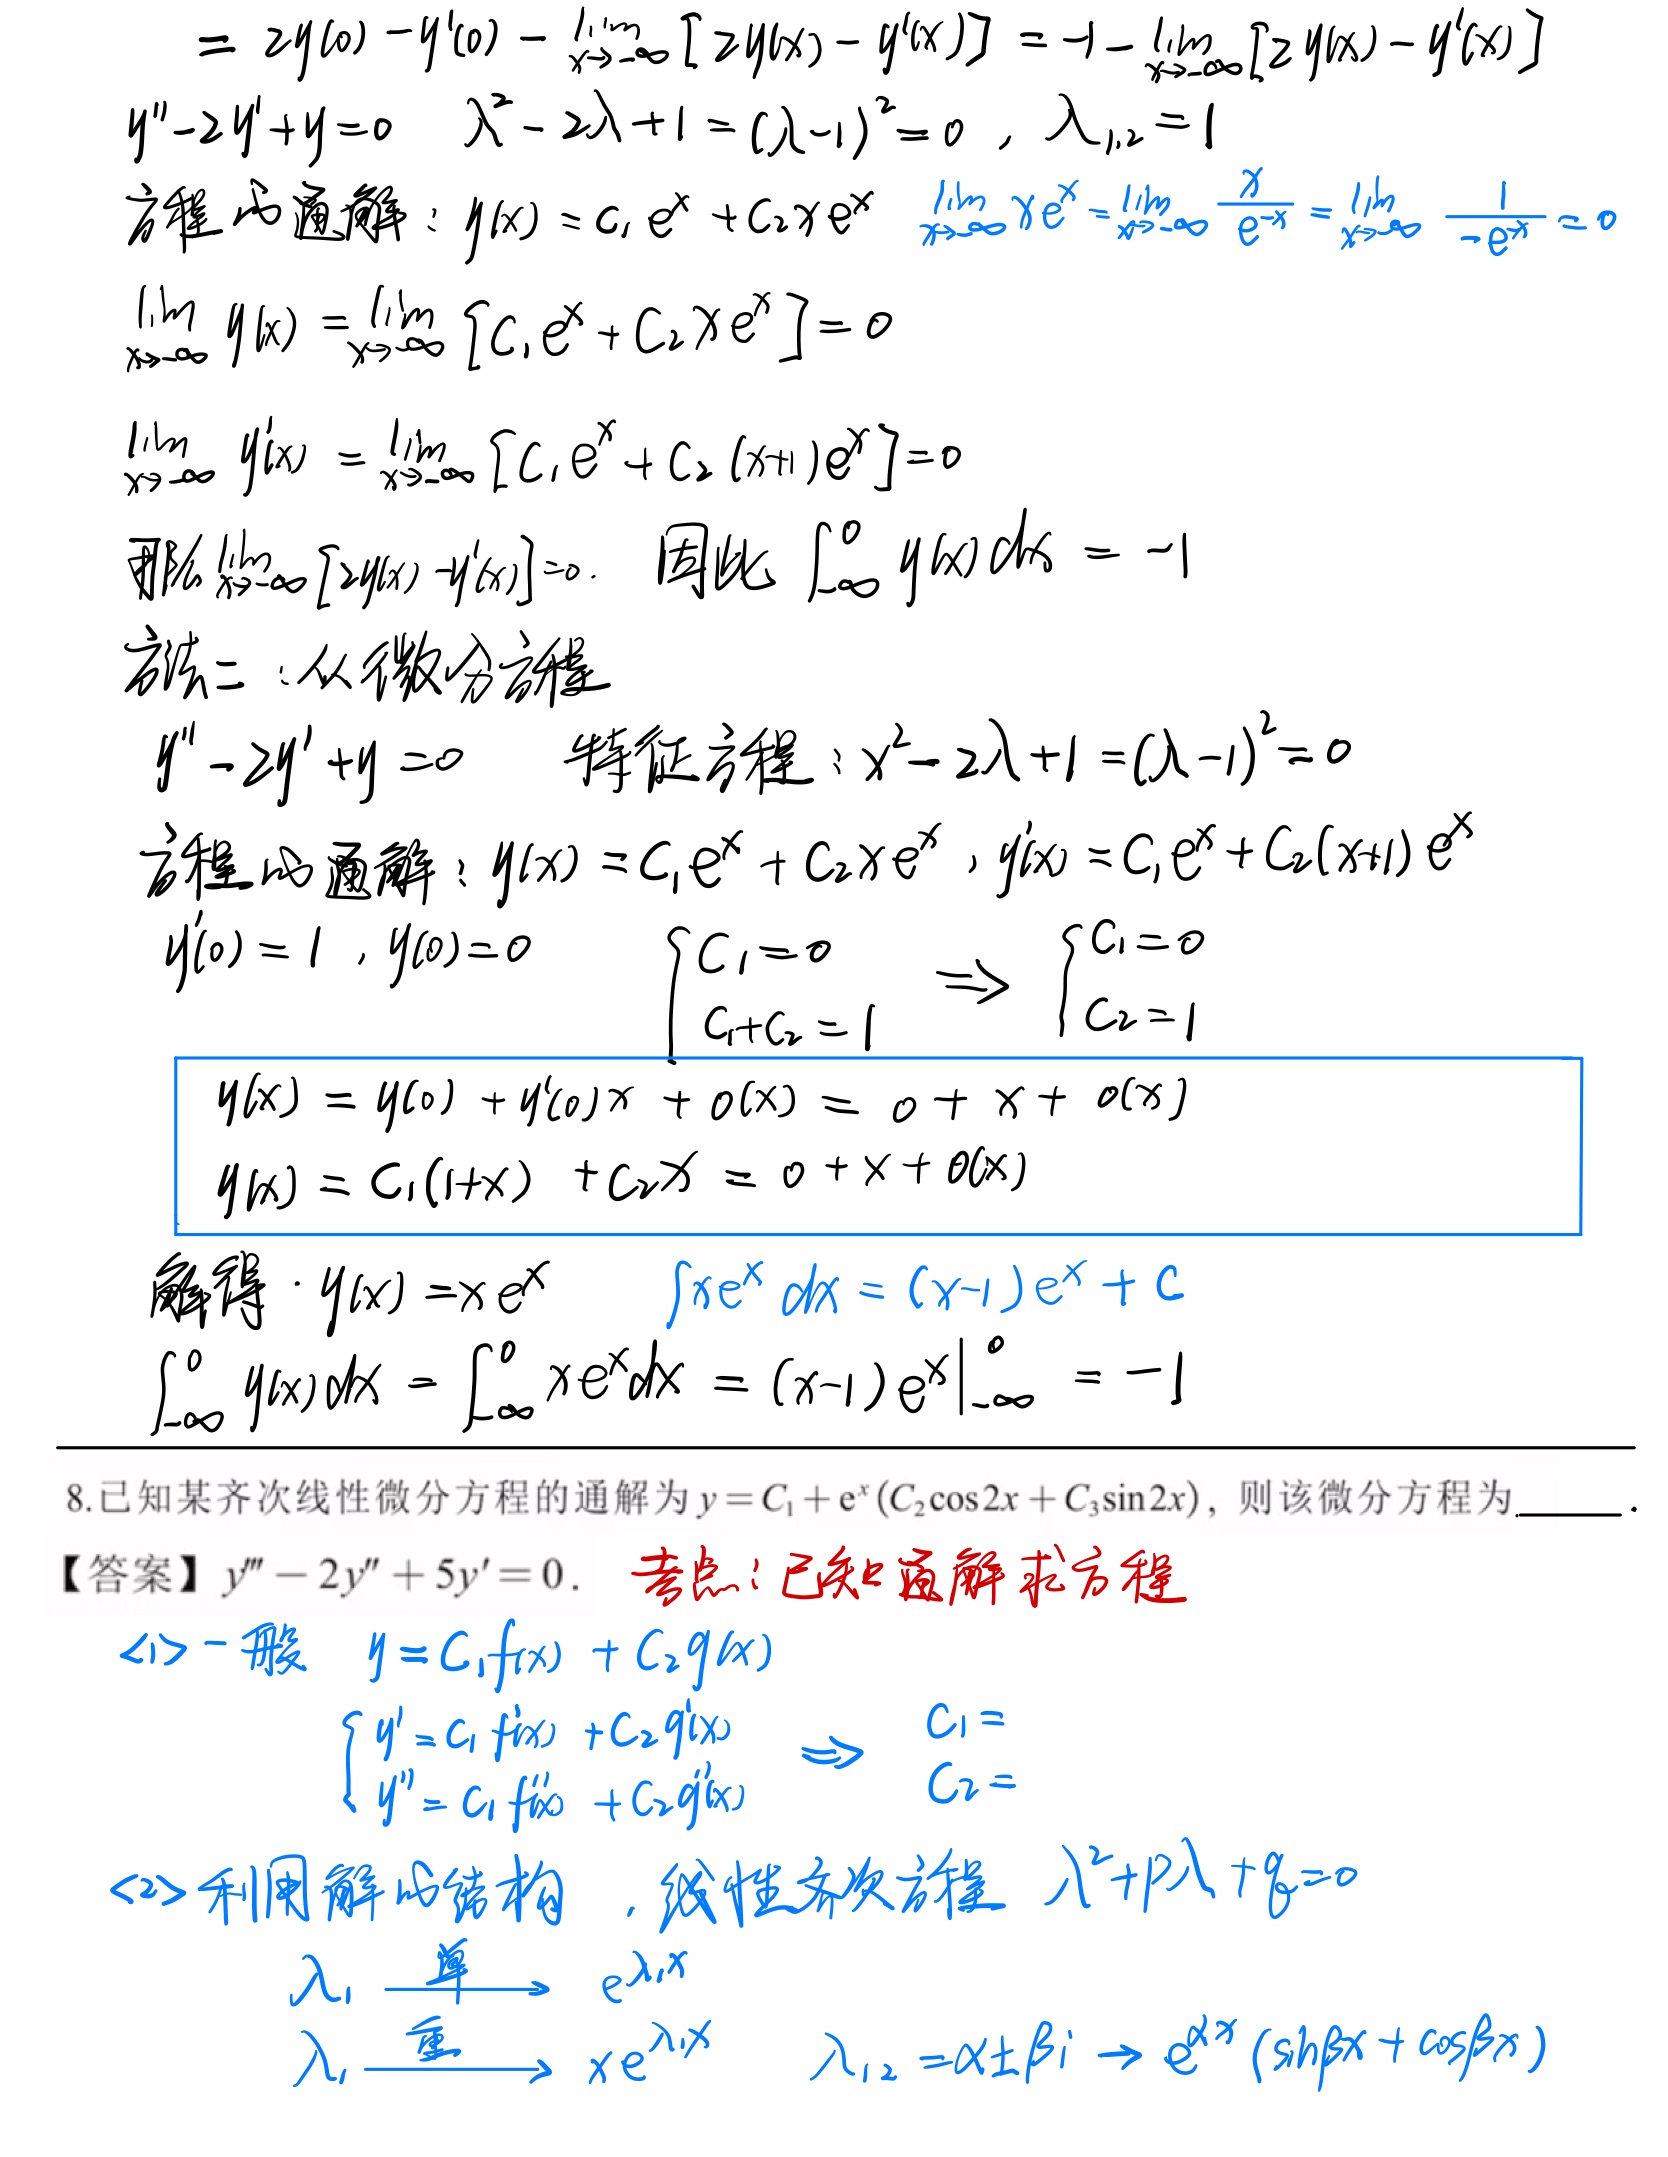 = 2y(0) - y'(0) - lim_{x→-∞} [2y(x) - y'(x)] = -1 - lim_{x→-∞} [2y(x) - y'(x)]
y'' - 2y' + y = 0   λ² - 2λ + 1 = (λ-1)² = 0 , λ_{1,2} = 1
方程的通解: y(x) = C₁e^x + C₂xe^x   lim_{x→-∞} xe^x = lim_{x→-∞} x/e^{-x} = lim_{x→-∞} 1/(-e^{-x}) = 0
lim_{x→-∞} y(x) = lim_{x→-∞} [C₁e^x + C₂xe^x] = 0
lim_{x→-∞} y'(x) = lim_{x→-∞} [C₁e^x + C₂(x+1)e^x] = 0
那么 lim_{x→-∞} [2y(x) - y'(x)] = 0. 因此 ∫_{-∞}^0 y(x)dx = -1
方法二:从微分方程
y'' - 2y' + y = 0   特征方程: x² - 2λ + 1 = (λ-1)² = 0
方程的通解: y(x) = C₁e^x + C₂xe^x , y'(x) = C₁e^x + C₂(x+1)e^x
y'(0) = 1 , y(0) = 0   { C₁ = 0   C₁+C₂ = 1   ⇒   { C₁ = 0   C₂ = 1
y(x) = y(0) + y'(0)x + o(x) = 0 + x + o(x)
y(x) = C₁(1+x) + C₂x = 0 + x + o(x)
解得· y(x) = xe^x   ∫xe^x dx = (x-1)e^x + C
∫_{-∞}^0 y(x)dx = ∫_{-∞}^0 xe^x dx = (x-1)e^x |_{-∞}^0 = -1
8.已知某齐次线性微分方程的通解为 y = C₁ + e^x(C₂cos2x + C₃sin2x), 则该微分方程为______.
【答案】y''' - 2y'' + 5y' = 0.   考点:已知通解求方程
<1> 一般   y = C₁f(x) + C₂g(x)
{ y' = C₁f'(x) + C₂g'(x)   ⇒   C₁ =
y'' = C₁f''(x) + C₂g''(x)   C₂ =
<2> 利用解的结构 , 线性齐次方程   λ² + pλ + q = 0
λ₁ 单→ e^{λ₁x}
λ₁ 重→ xe^{λ₁x}   λ_{12} = α±βi → e^{αx}(sinβx + cosβx)